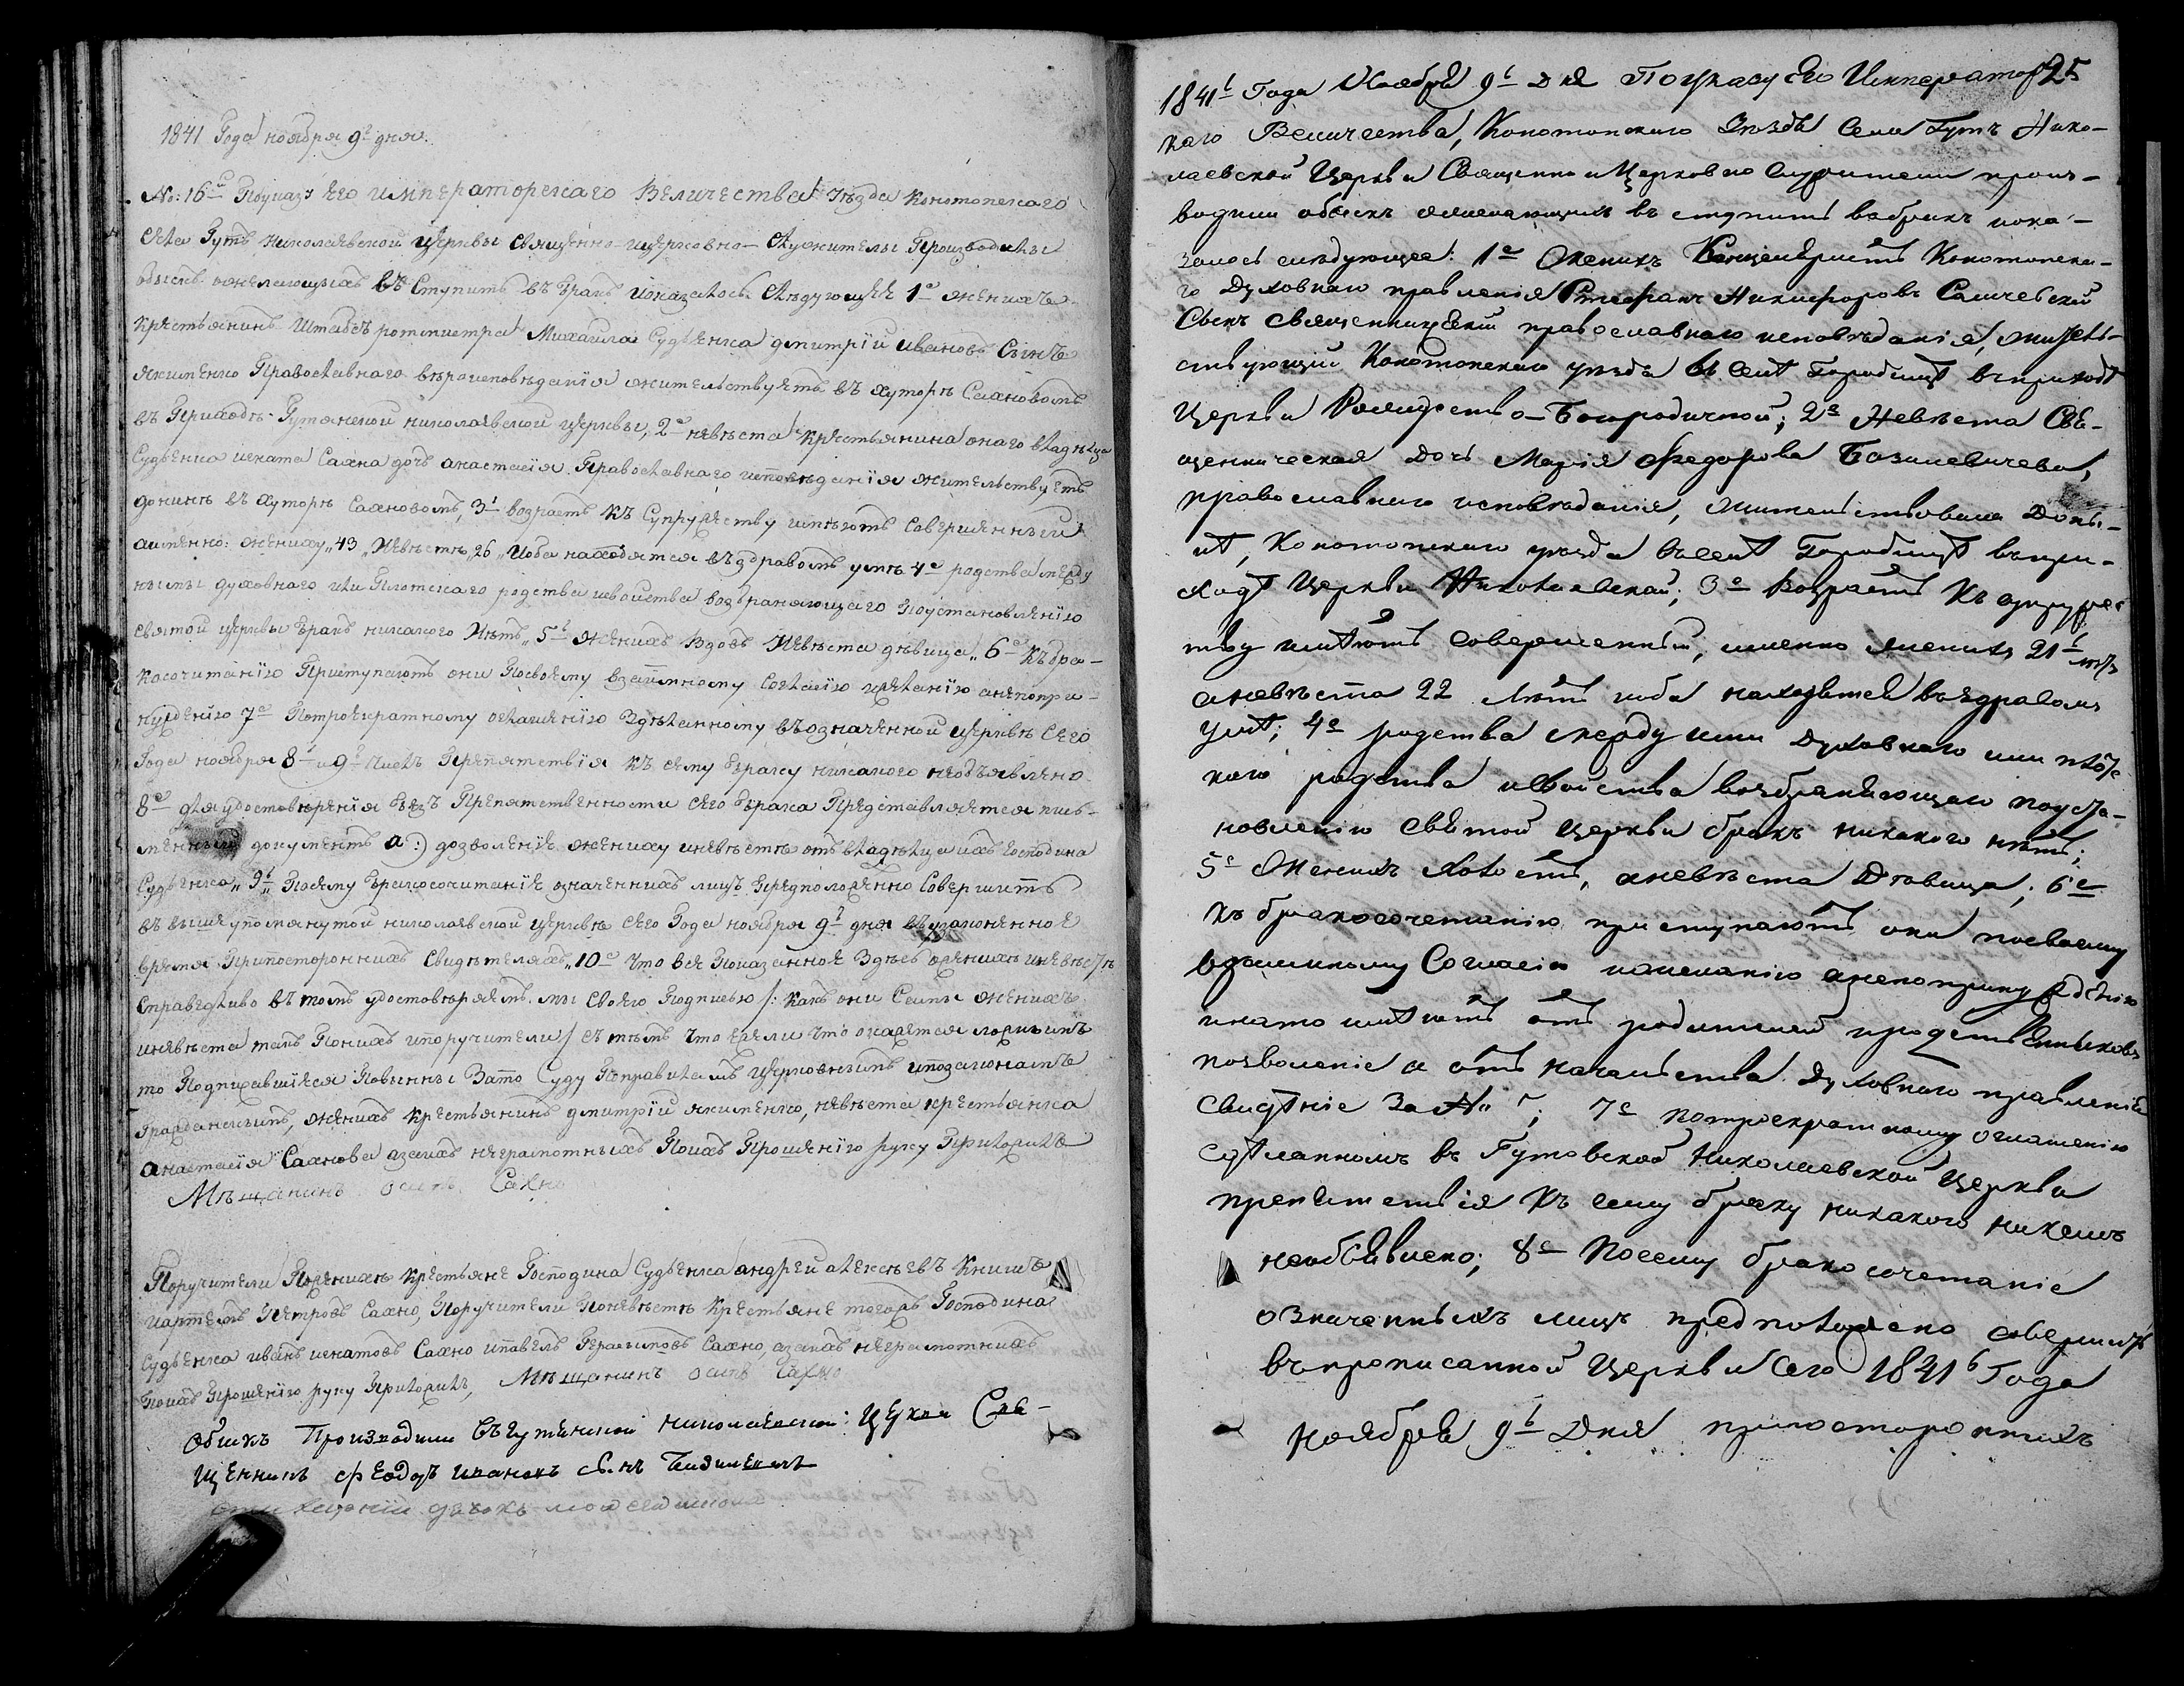 1841 Года ноября 9го дня.
№: 16й Поуказу Его императорскаго Величества уѣзда Конотопскаго
села Гутъ Николаевской церквы священно-церковно-служители Производилы
обыскъ ожелающыхъ въ Ступить въ Бракъ иоказалось слѣдующее 1е женихъ
крестьянинъ Штабсъ ротмистра Михайла Судьенка дмитрій ивановъ Сынъ
якименко Православнаго вѣроисповѣданія жительствуетъ въ хуторѣ Сахновомъ
въ Приходѣ Гутянской николаевской церквы, 2е невѣста крестьянина онаго владѣльца
Судьенка игната Сахна дочъ анастасія Православнаго исповѣданія жительствуетъ
донинѣ въ хуторѣ Сахновомъ, 3й возрастъ къ Супружеству имѣютъ Савершенный
аимѣнно: жениху „43„ Невѣстѣ „26„ Иоба находятся въ здравомъ умѣ 4е родства между
нымы духовнаго или Плотскаго родства исвойства возбраняющаго Поустановленію
святой церквы Бракъ никакого Нѣтъ „5й женихъ вдовъ Невѣста дѣвица„ 6е Къ бра-
косочитанію Приступаютъ они Посвоему взаимному согласію ижеланію анепопри-
нужденію 7е Потроекратному огълашенію Здѣланному въозначенной церквѣ сего
Года ноября 8го и 9го числъ Препятствія къ сему браку никакого необъявлено
8е для удостовѣренія безъ Препятственности сего брака Представляется пись-
менный документъ а:) дозволеніе жениху иневѣстѣ отъ владѣльца ихъ господина
Судьенка„ 9й Посему бракосочитаніе означеннихъ лицъ Предположенно Совершить
въ вышеупомянутой николаевской церквѣ сего Года ноября 9го дня въ узаконенное
время Припосторонныхъ Свидѣтеляхъ„ 10е Что все Показанное Здѣсь оженихѣ иневѣстѣ
Справедливо въ томъ удостовѣряемъ мы своею Подписью /: какъ они Самы женихъ
иневѣста такъ Понихъ ипоручители/ съ тѣмъ что ежели что окажется ложнымъ
то Подписавшіеся Повынны Зато Суду Поправиламъ церковнымъ ипозаконамъ
Гражданскимъ, женихъ крестьянинъ дмитрій якименко, невѣста крестьянка
анастасія Сахнова азаихъ неграмотныхъ Поихъ Прошенію руку Приложилъ
Мѣщанинъ осипъ Сахно
Поручители Поженихѣ крестьяне Господина Судьенка андрей алексѣевъ Книшъ
иартемъ Петровъ Сахно, Поручители Поневѣстѣ крестьяне тогожъ Господина
Судьенка иванъ игнатовъ Сахно ипавелъ Герасимовъ Сахно, азаихъ неграмотнихъ
Поихъ Прошенію руку Приложилъ, Мѣщанинъ осипъ Сахно
Обискъ Производили Сѣгутянской николаевской: Церкви Свя-
щенникъ федоръ ивановъ сынъ
25
1841го Года Ноября 9го Дня Поуказу Его Императорс
каго Величества, Конотопскаго Уѣзда Села Гутъ Нико-
лаевской Церкви Священно и Церковно служители произ-
водили обыскъ желающихъ въ ступить вобракъ пока-
залось слѣдующее: 1е Женихъ Канцеляристъ Конотопска-
го Духовнаго правленія Стефанъ Никифоровъ Саличевскій
Сынъ священническій православнаго исповѣданія, житель-
ствующій Конотопскаго уѣзда въ селѣ Городищѣ въприходѣ
Церкви Рождество-Богородичной; 2е Невѣста Свя-
щенническая дочь Марія Федорова Базилевичева,
православнаго исповѣданія, жительствовала Доны-
нѣ, Конотопскаго уѣзда въселѣ Городищѣ въпри-
ходѣ Церкви Николаевской; 3е Возрастъ къ супружес
тву имѣютъ совершенный, именно женихъ 21го лѣтъ
аневѣста 22 лѣтъ иоба находятся въздравомъ
умѣ; 4е родства между ими духовнаго или плотс
каго родства исвойства возбраняющаго поуста-
новленію святой Церкви бракъ никакого нѣтъ;
5е Женихъ холостъ, аневѣста Дѣвица; 6е
къ бракосочетанію приступаютъ они посвоему
взаимному Согласію ижеланію анепопринужденію
инато имѣютъ отъ родителей иродственниковъ
позволеніе а отъ начальства Духовнаго правленія
свидѣніе За № ; 7е потроекратному оглашенію
сдѣланномъ въ Гутовской Николаевской Церкви
препятствія къ сему браку никакого никемъ
необъявлено; 8е Посему бракосочетаніе
означенныхъ лицъ предположено совершить
въпрописанной Церкви сего 1841го Года
Ноября 9го Дня припостороннихъ